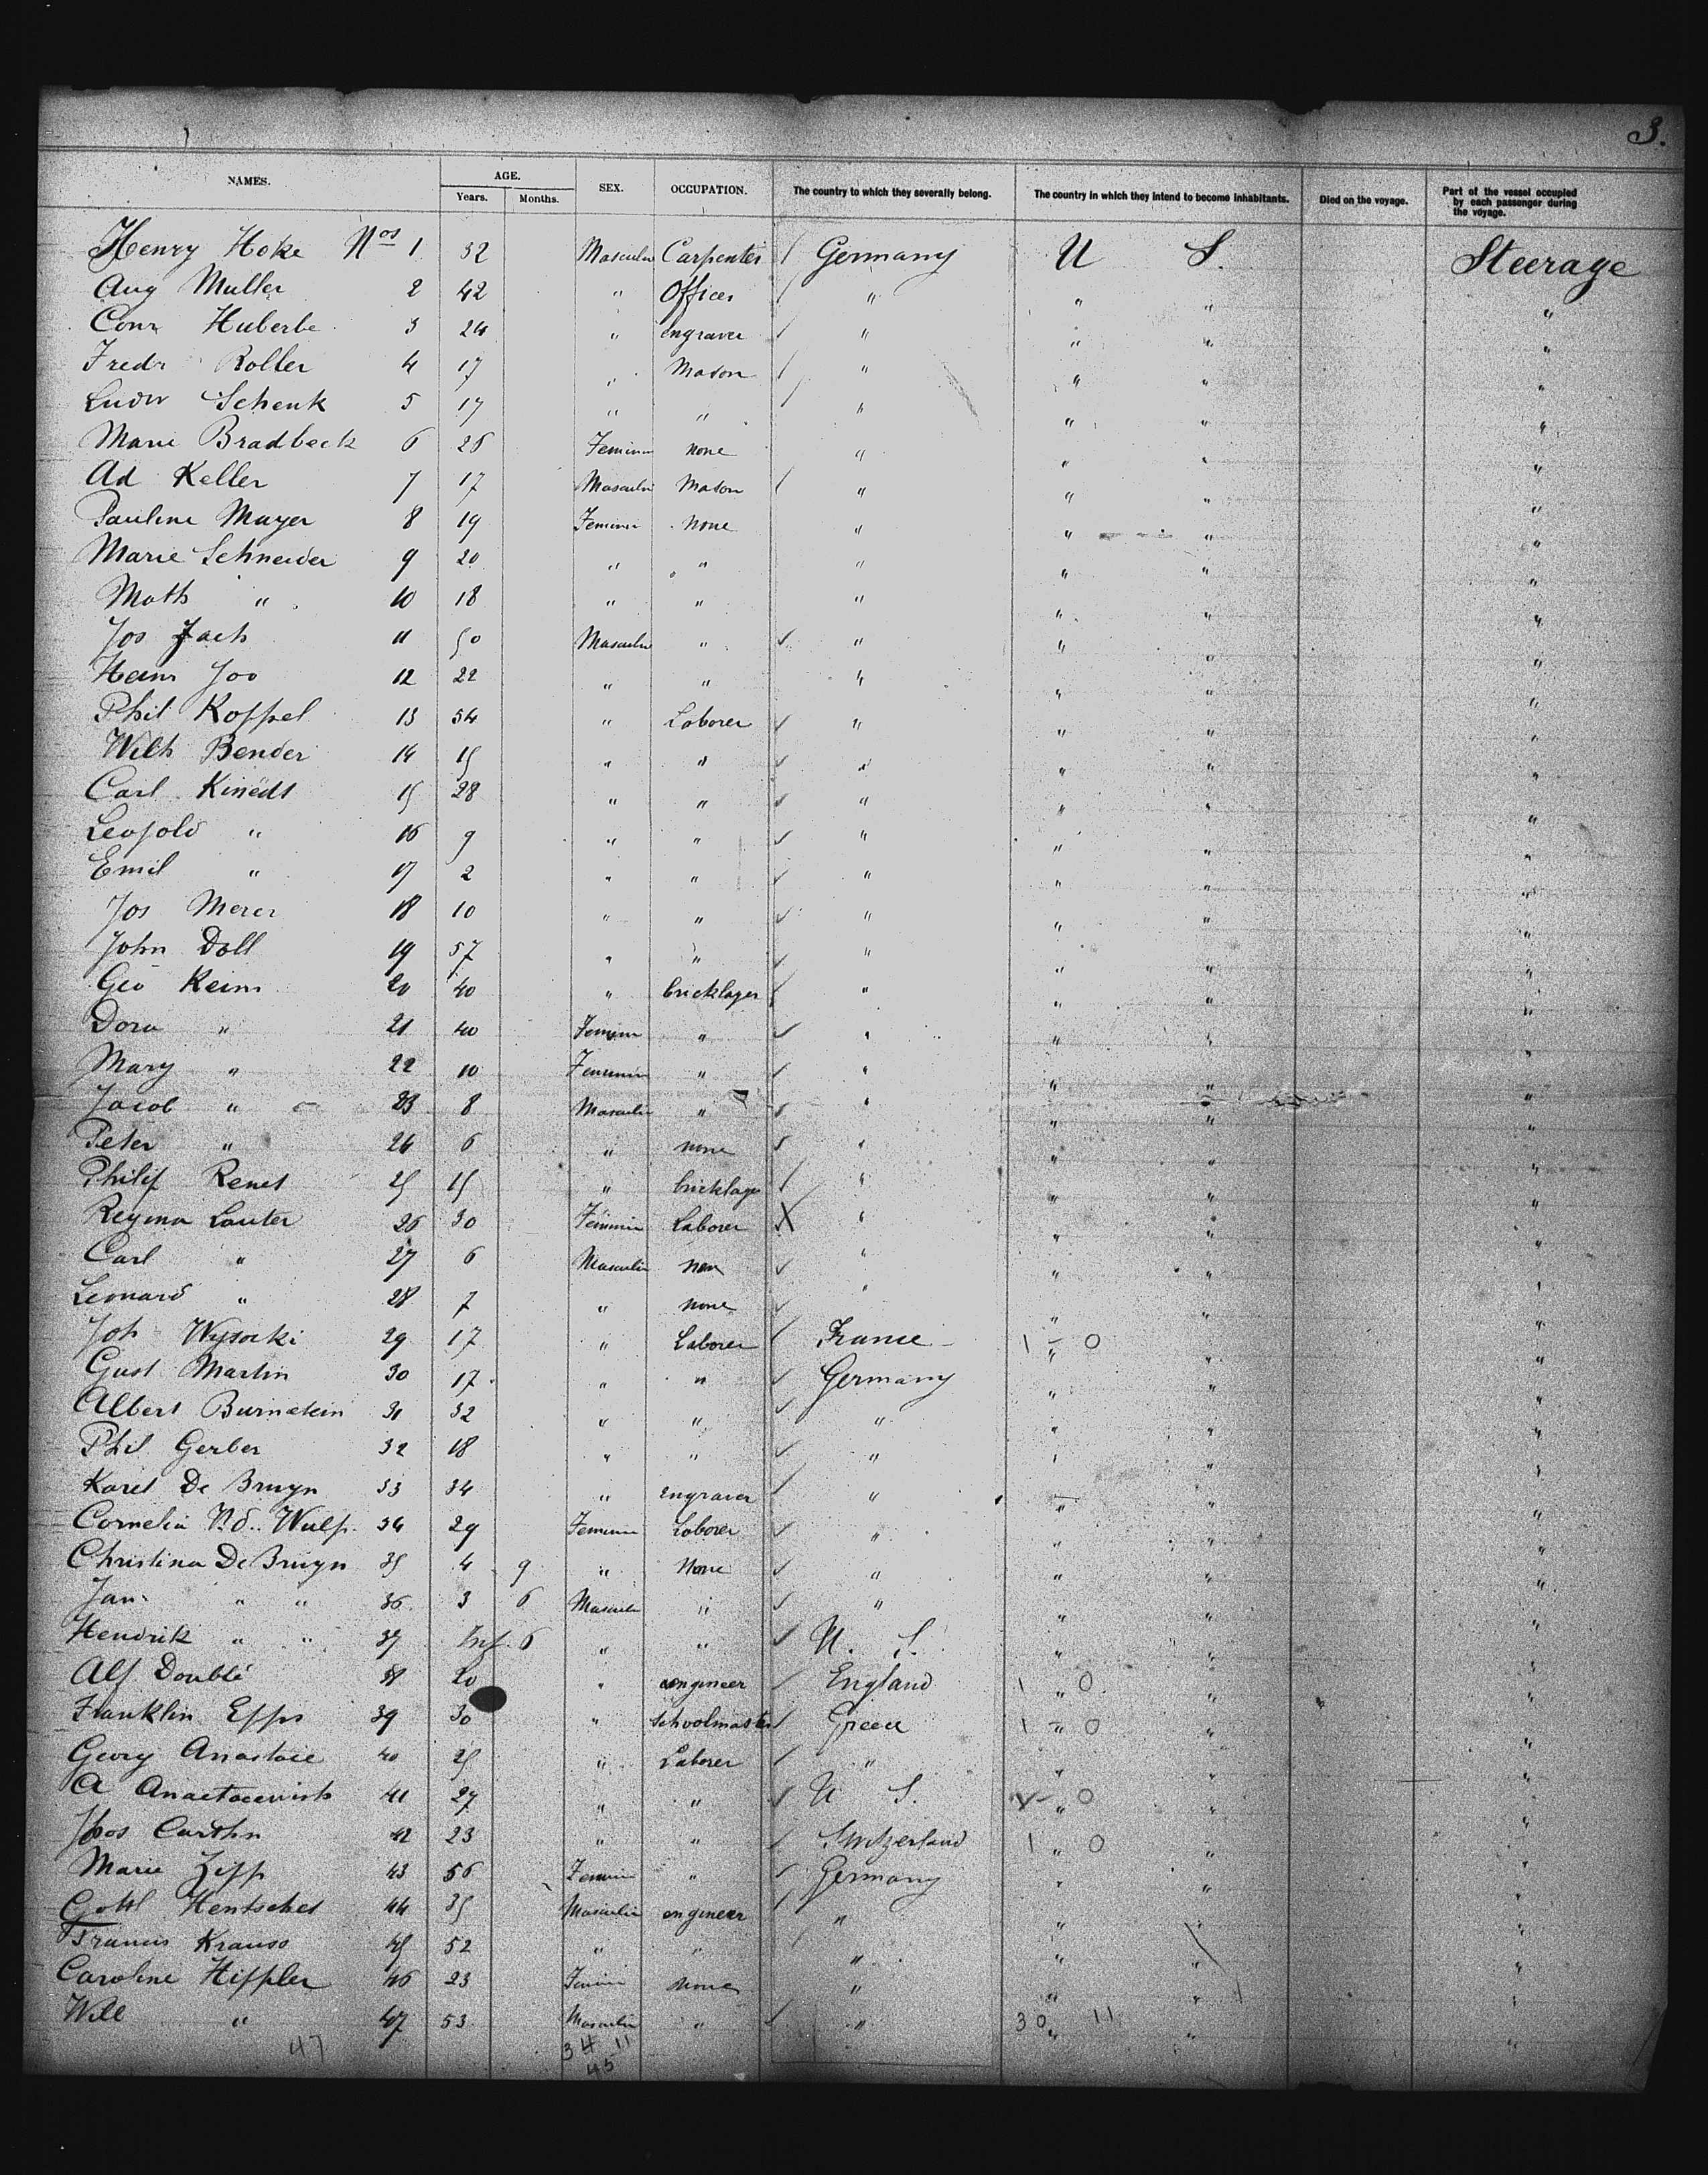 3.
NAMES. AGE. Years. Months. SEX. OCCUPATION. The country to which they severally belong. The country in which they intend to become inhabitants. Died on the voyage. Part of the vessel occupied by each passenger during the voyage.
Henry Hoke Nos 1 32 Masculin Carpenter Germany U S. Steerage
Aug Muller 2 42 " Officer " " " "
Conr Huberle 3 24 " engraver " " " "
Fredr Roller 4 17 " Mason " " " "
Ludw Schenk 5 17 " " " " " "
Marie Bradbeck 6 26 Feminin none " " " "
Ad Keller 7 17 Masculin Mason " " " "
Pauline Mayer 8 19 Feminin none " " " "
Marie Schneider 9 20 " " " " " "
Math " 10 18 " " " " " "
Jos Zach 11 50 Masculin " " " " "
Heinr Joo 12 22 " " " " " "
Phil Koppel 13 54 " Laborer " " " "
Wilh Bender 14 15 " " " " " "
Carl Kinedt 15 28 " " " " " "
Leopold " 16 9 " " " " " "
Emil " 17 2 " " " " " "
Jos Merer 18 10 " " " " " "
John Doll 19 57 " " " " " "
Geo Keim 20 40 " bricklayer " " " "
Dora " 21 40 Feminin " " " " "
Mary " 22 10 Feminin " " " " "
Jacob " 23 8 Masculin " " " " "
Peter " 24 6 " none " " " "
Philip Renet 25 15 " bricklayer " " " "
Regina Lauter 26 30 Feminin Laborer X " " " "
Carl " 27 6 Masculin non " " " "
Leonard " 28 7 " none " " " "
Joh Wysocki 29 17 " Laborer France 1 - 0 " " "
Gust Martin 30 17 " " Germany " " "
Albert Burnstein 31 32 " " " " " "
Phil Gerber 32 18 " " " " " "
Karel De Bruyn 33 34 " engraver " " " "
Cornelia V.d. Wulp 34 29 Feminin Laborer " " " "
Christina De Bruyn 35 4 9 " None " " " "
Jan " " 36 3 6 Masculin " " " " "
Hendrik " " 37 Inf. 6 " " U. S. " " "
Alf Doublé 38 20 " engineer England 1 " 0 " "
Franklin Epps 39 30 " Schoolmaster Greece 1 - 0 " " "
Georg Anastace 40 25 " Laborer " " " "
A 41 27 " " U S. 0 " " "
Jos Carthn 42 23 " " Switzerland 1 " 0 " "
Marie Zipp 43 56 Feminin " Germany " " "
Gottl Hentschel 44 35 Masculin engineer " " " "
Francis Krauss 45 52 " " " " " "
Caroline Hippler 46 23 Feminin none " " " "
Will " 47 53 Masculin " " 30 11 " " "
47 34 11
45